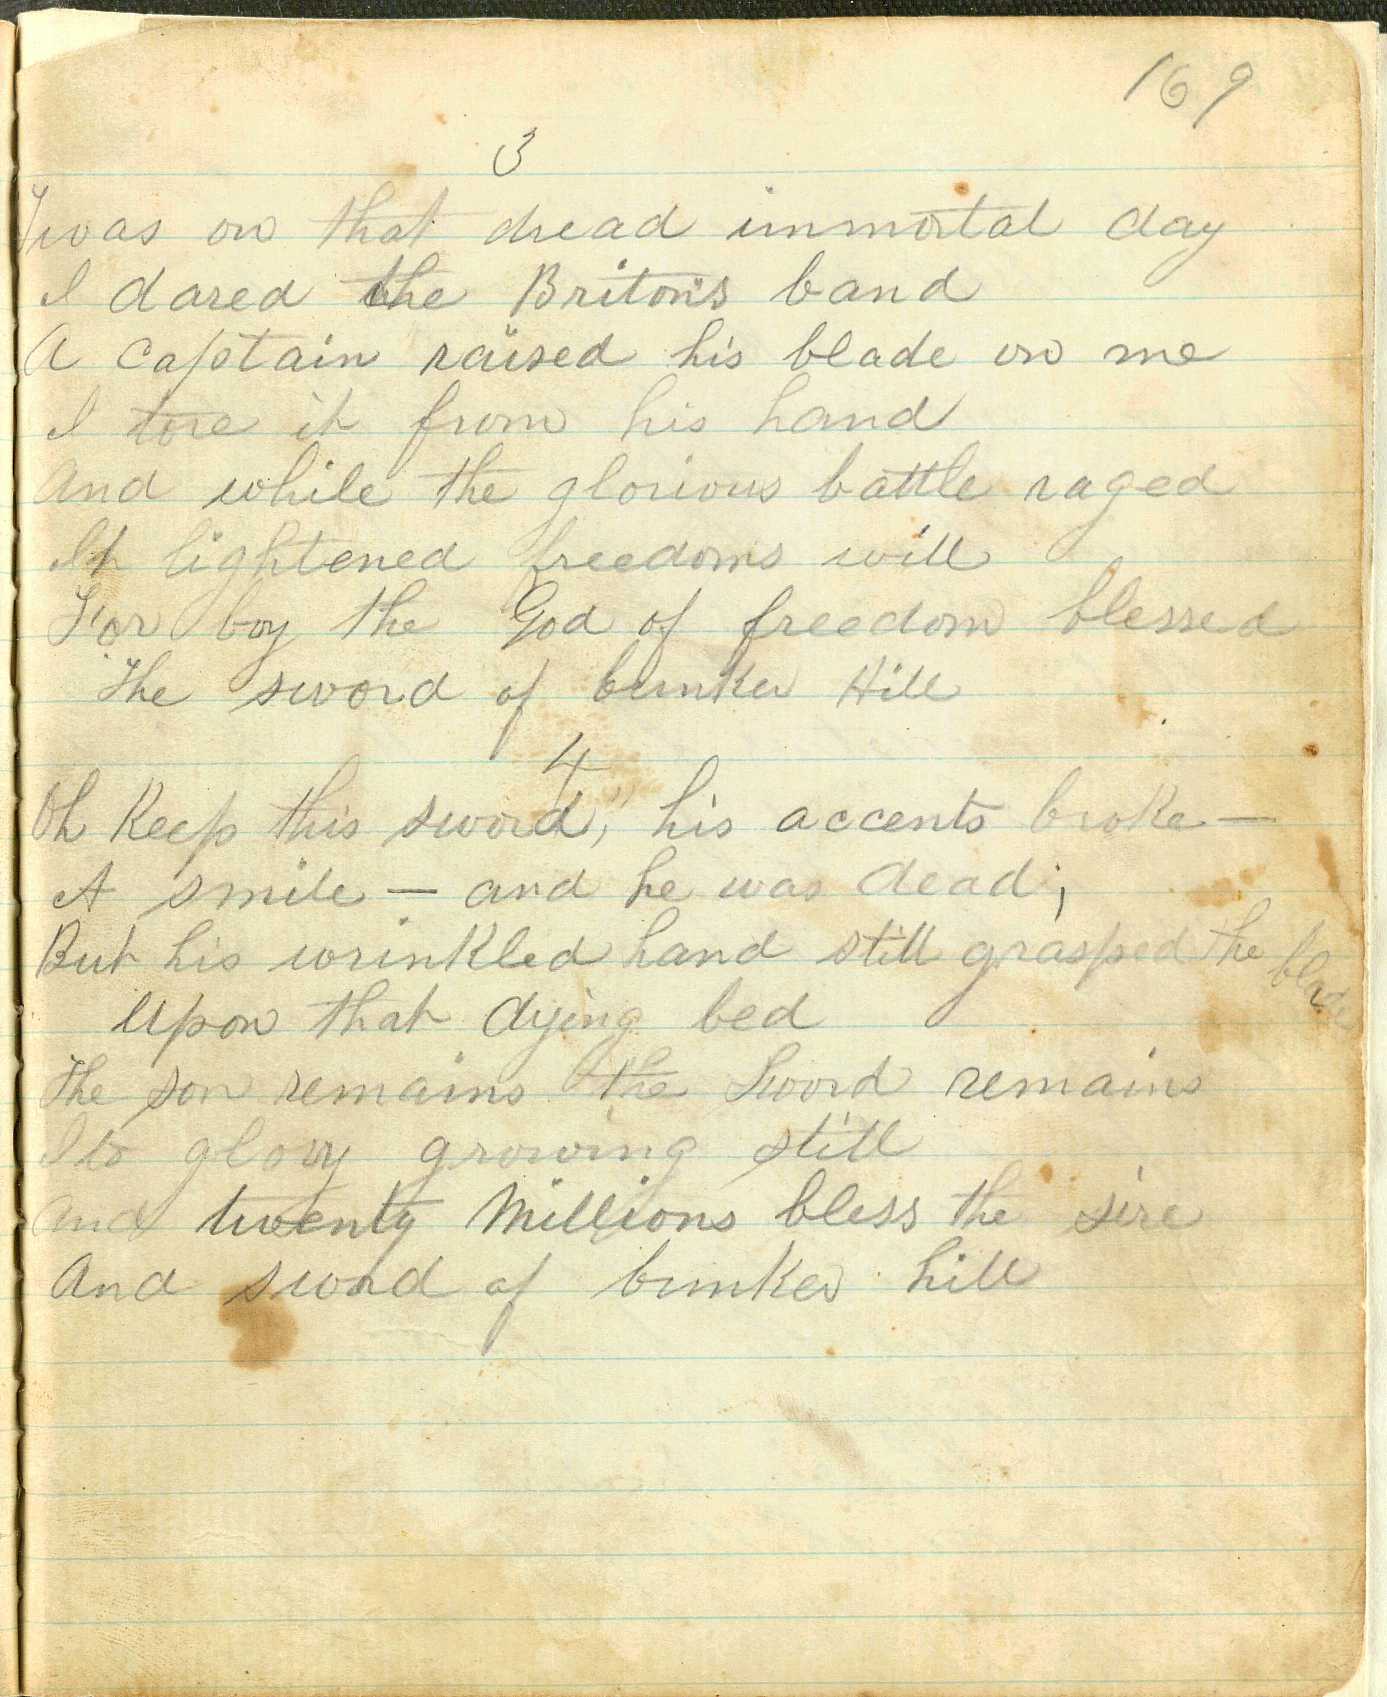 169
3
Twas on that dread immortal day
I dared the Briton's band
A captain raised his blade on me
I tore it from his hand
And while the glorious battle raged
It lightened freedoms will
For boy the God of freedom blessed
The sword of bunker Hill
4
Oh Keep this sword," his accents broke —
A smile — and he was dead;
But his wrinkled hand still grasped the blade
Upon that dying bed
The son remains the Sword remains
Its glory growing still
And twenty Millions bless the sire
And sword of bunker hill